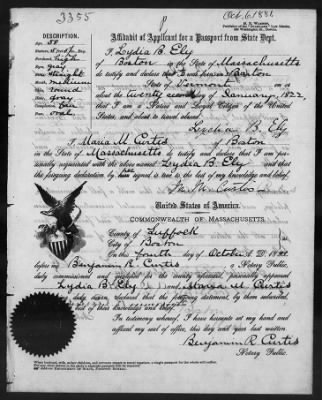 3355
Oct. 6/1881
DESCRIPTION.
Affidavit of Applicant for a Passport from State Dept.
Age, 59
I, Lydia B. Ely
of Boston in the State of Massachusetts
do testify and declare that I was born in Barton
State of Vermont on or
about the twenty second of January, 1822,
that I am a Native and Loyal Citizen of the United
States, and about to travel abroad.
Lydia B. Ely
I, Maria M. Curtis of Boston
in the State of Massachusetts do testify and declare that I am per-
sonally acquainted with the above named Lydia B. Ely and that
the foregoing declaration by her is true to the best of my knowledge and belief.
United States of America.
COMMONWEALTH OF MASSACHUSETTS.
County of Suffolk
City of Boston
On this fourth day of October A.D. 1881
before me Benjamin R. Curtis a Notary Public,
duly commissioned and qualified for the county aforesaid, personally appeared
Lydia B. Ely and Maria M. Curtis
and duly sworn, declared that the foregoing statement, by them subscribed,
best of their knowledge and belief.
In testimony whereof, I have hereunto set my hand and
affixed my seal of office, this day and year last written
Benjamin R. Curtis
Notary Public.